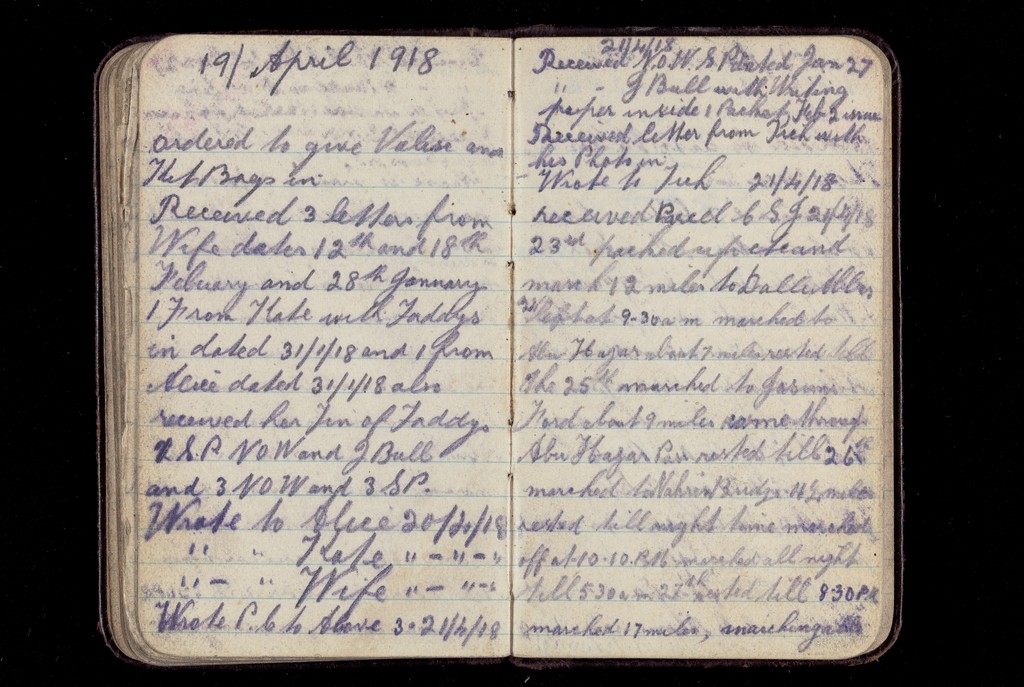 19/ April 1918
ordered to give Valise and
Kit Bags in
Received 3 letters from
Wife dates 12th and 18th
Febuary and 28th January
1 From Kate with Faddys
in dated 31/1/18 and 1 from
Alice dated 31/1/18 also
received her Tin of Faddys
S.P. N O W and J Bull
and 3 N O W and 3 S P.
Wrote to Alice 20/4/18
" " Kate " - " - "
" - " Wife " - " - "
Wrote P.C to Above 3 - 21/4/18
21/4/18
Received N.O.W. S P dated Jan 27
" - J Bull with Writing
paper inside 1 Packet Feb 2 issue
Received letter from with
his Photo in
- Wrote to 21/4/18
received 6 S J 21/4/18
23rd packed up etc and
march 12 miles to Dalli Abbas
at 9-30 am marched to
Abu Hagar about 7 miles rested till
the 25th marched to
Ford about 9 miles came through
Abu Hagar Pass rested till 26th
marched to Nahrin Bridge miles
rested till night time marched
off at 10-10 P.M marched all night
till 5 30 am 27th rested till 8 30 P.M
marched 17 miles, marching